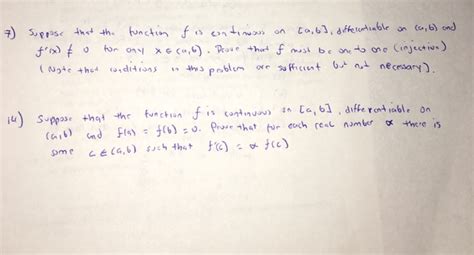 7) Suppose that the function f is continuous on [a,b], differentiable on (a,b) and
f'(x) ≠ 0 for any x ∈ (a,b). Prove that f must be one to one (injective)
(Note that conditions in this problem are sufficient but not necessary).
14) Suppose that the function f is continuous on [a,b], differentiable on
(a,b) and f(a) = f(b) = 0. Prove that for each real number α there is
some c ∈ (a,b) such that f'(c) = α f(c)